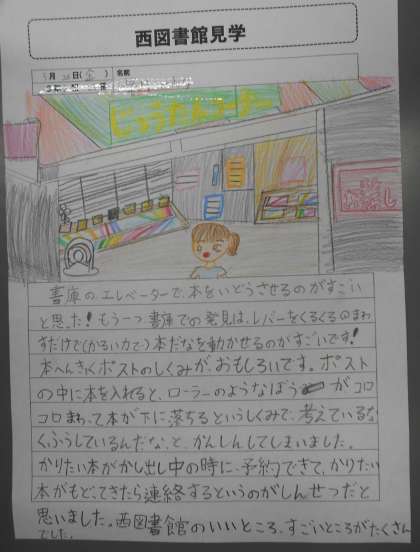 西図書館見学
月 日(金) 名前
じどうたんコーナー
書庫のエレベーターで、本をいどうさせるのがすごい
と思った！もう一つ書庫での発見は、レバーをくるくるまわ
すだけで(かるい力で)本だなを動かせるのがすごいです！
本へんきゃくポストのしくみが、おもしろいです。ポスト
の中に本を入れると、ローラーのようなぼうがコロ
コロまわって本が下に落ちるというしくみで、考えているな、
くふうしているんだな、と、かんしんしてしまいました。
かりたい本がかし出し中の時に、予約できて、かりたい
本がもどってきたら連絡するというのがしんせつだと
思いました。西図書館のいいところ、すごいところがたくさん
でした。